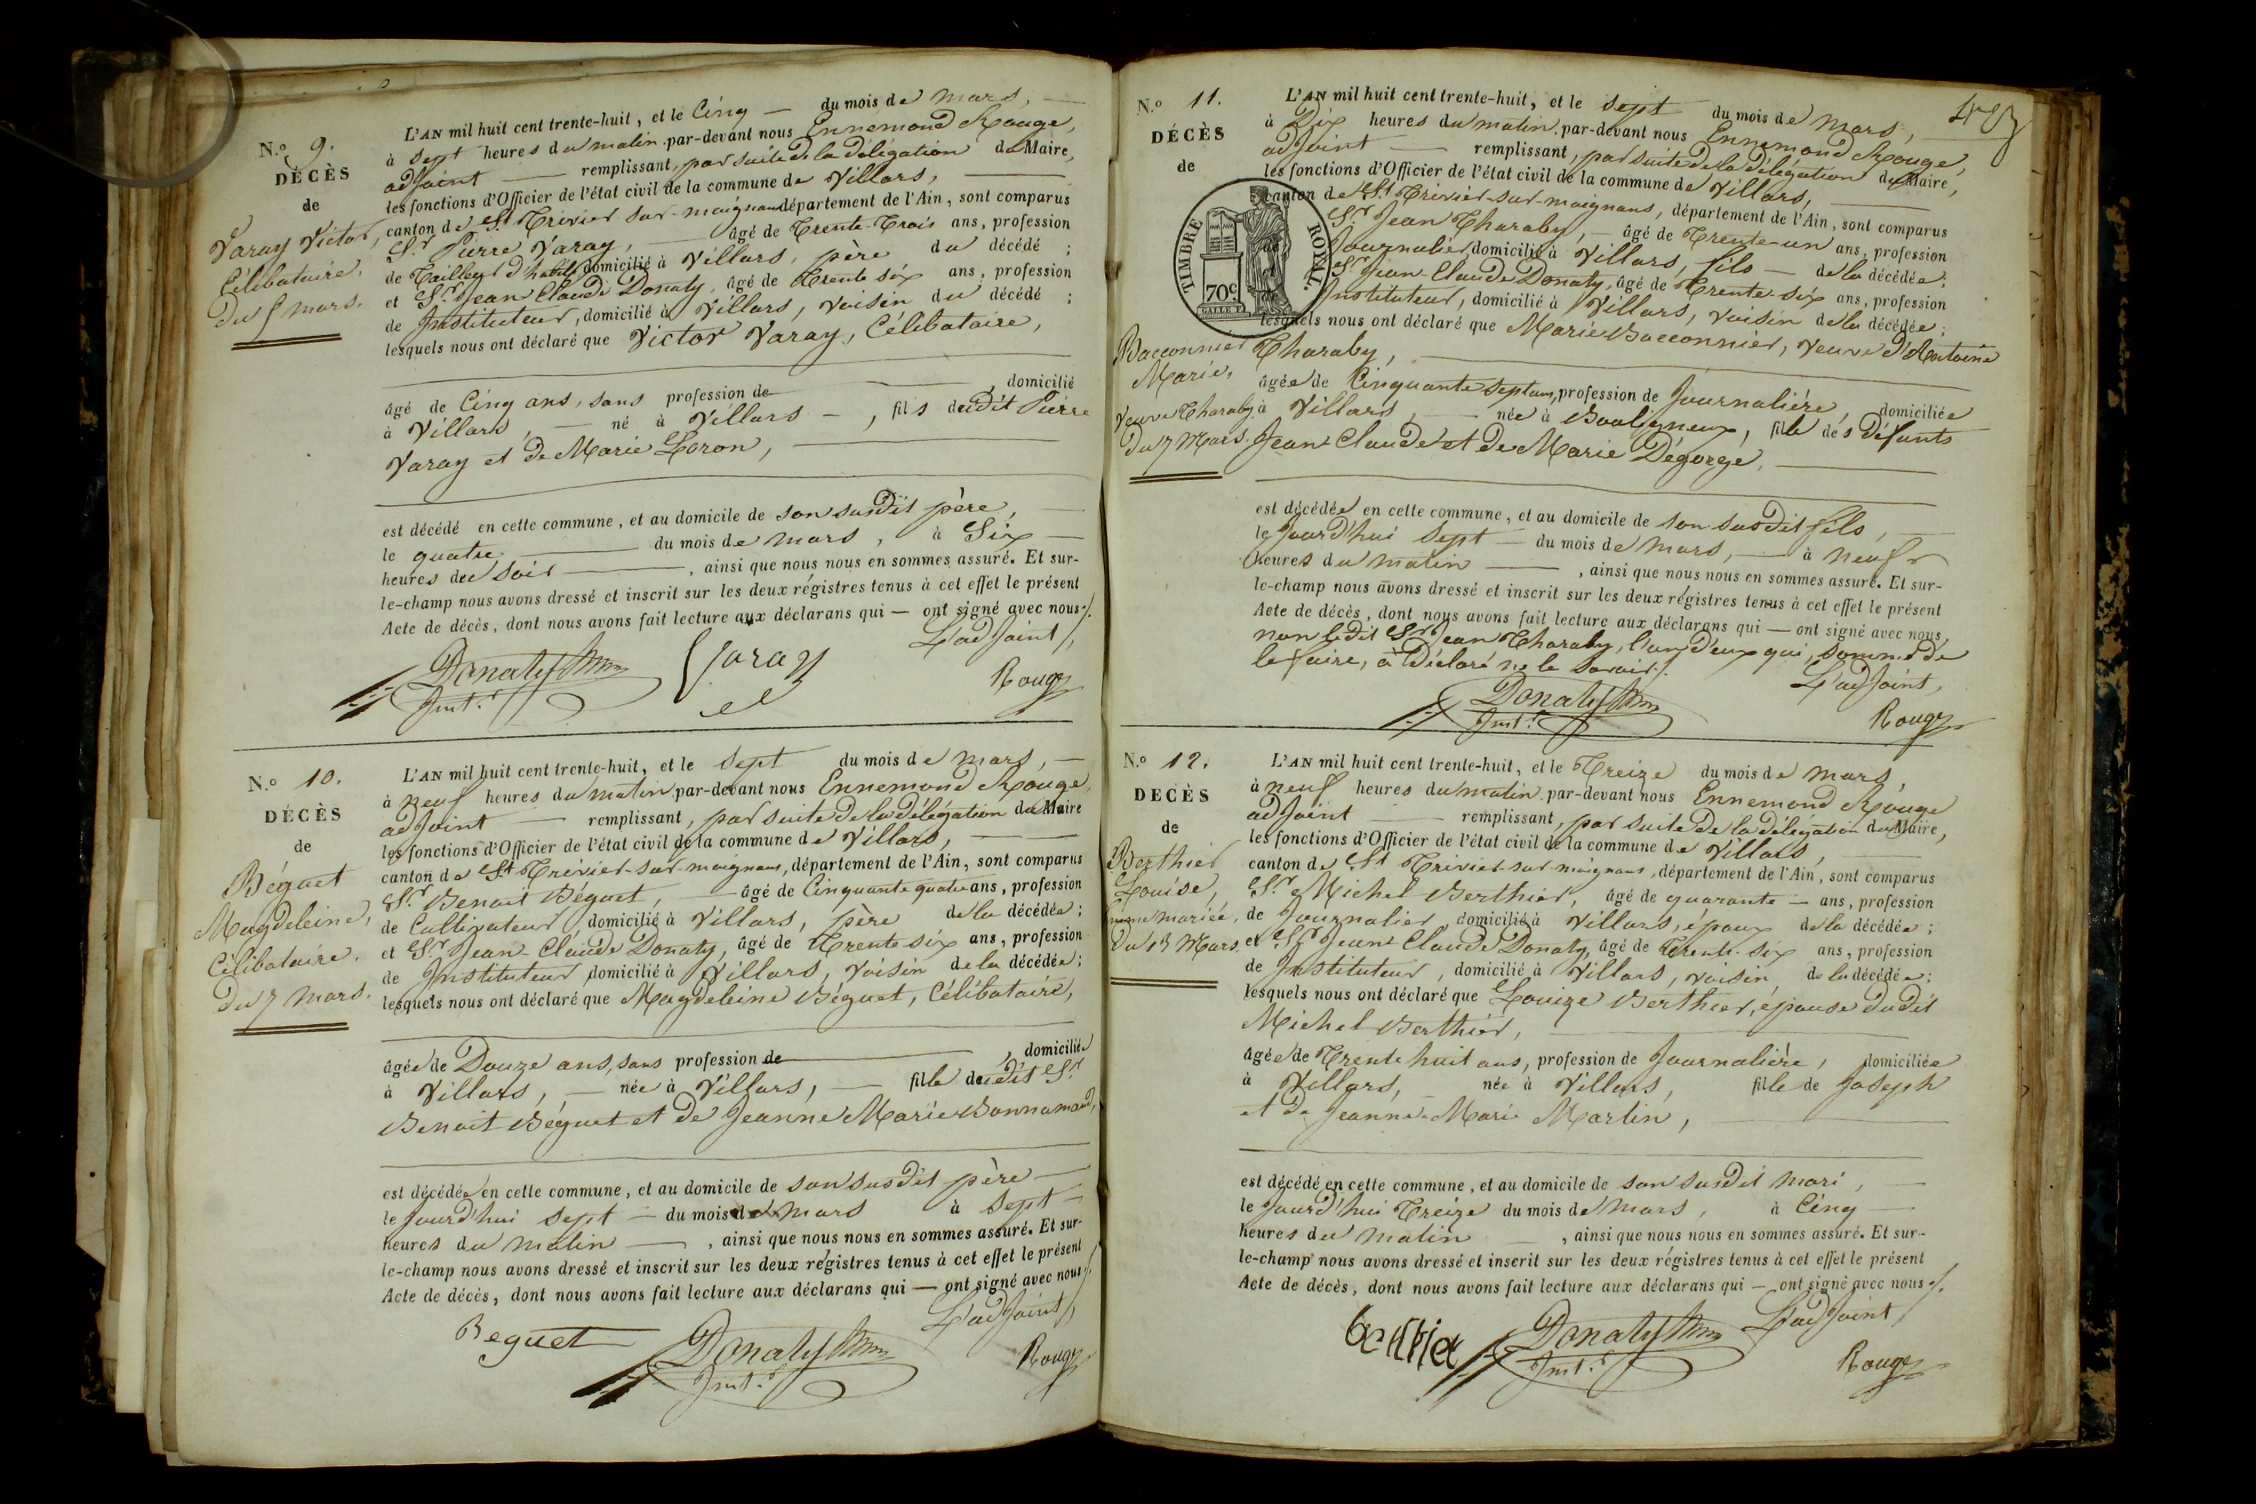 N.o 9.
DÉCÈS
de
Varay Victor,
Célibataire.
Du 5 mars.
L'AN mil huit cent trente-huit, et le Cinq — du mois de mars, —
à Sept heures du matin par-devant nous Ennemond Rouge,
adjoint — remplissant, par suite de la délégation du Maire,
les fonctions d'Officier de l'état civil de la commune de Villars, —
canton de St Trivier-sur-moignans département de l'Ain, sont comparus
Sr Pierre Varay, — âgé de Trente-Trois ans, profession
de Tailleur d'habits domicilié à Villars, père du décédé ;
et Sr Jean Claude Donaty, âgé de Trente six ans, profession
de Instituteur, domicilié à Villars, voisin du décédé ;
lesquels nous ont déclaré que Victor Varay, Célibataire,
âgé de Cinq ans, sans profession de — , domicilié
à Villars, — né à Villars —, fils dudit Pierre
Varay et de Marie Loron, —
est décédé en cette commune, et au domicile de son susdit père, —
le quatre — du mois de mars, à Six —
heures du soir —, ainsi que nous nous en sommes assuré. Et sur-
le-champ nous avons dressé et inscrit sur les deux régistres tenus à cet effet le présent
Acte de décès, dont nous avons fait lecture aux déclarans qui — ont signé avec nous ./.
L'adjoint,
Donaty
Inst.r
Varay
Rouge
N.o 10.
DÉCÈS
de
Béguet
Magdeleine,
Célibataire.
Du 7 mars.
L'AN mil huit cent trente-huit, et le Sept du mois de mars, —
à neuf heures du matin par-devant nous Ennemond Rouge,
adjoint — remplissant, par suite de la délégation du Maire
les fonctions d'Officier de l'état civil de la commune de Villars, —
canton de St Trivier-sur-moignans, département de l'Ain, sont comparus
Sr Benoit Béguet, — âgé de Cinquante quatre ans, profession
de Cultivateur, domicilié à Villars, père de la décédée ;
et Sr Jean-Claude Donaty, âgé de Trente six ans, profession
de Instituteur, domicilié à Villars, voisin de la décédée ;
lesquels nous ont déclaré que Magdeleine Béguet, Célibataire,
âgée de Douze ans, sans profession de — , domiciliée
à Villars, — née à Villars, — fille dudit Sr
Benoit Béguet et de Jeanne Marie Bonnamand,
est décédée en cette commune, et au domicile de son susdit père —
le Jourd'hui Sept — du mois de mars à Sept —
heures du matin —, ainsi que nous nous en sommes assuré. Et sur-
le-champ nous avons dressé et inscrit sur les deux régistres tenus à cet effet le présent
Acte de décès, dont nous avons fait lecture aux déclarans qui — ont signé avec nous ./.
L'adjoint,
Beguet
Donaty
Inst.r
Rouge
N.o 11.
DÉCÈS
de
Bacconnier
Marie,
Veuve Tharaby
Du 7 Mars.
TIMBRE ROYAL.
70c
L'AN mil huit cent trente-huit, et le Sept du mois de mars, —
à Dix heures du matin par-devant nous Ennemond Rouge,
adjoint — remplissant, par suite de la délégation du Maire,
les fonctions d'Officier de l'état civil de la commune de Villars, —
canton de St Trivier-sur-moignans, département de l'Ain, sont comparus
Sr Jean Tharaby, — âgé de Trente-un ans, profession
de Journalier, domicilié à Villars, fils — de la décédée ;
et Sr Jean-Claude Donaty, âgé de Trente-six ans, profession
de Instituteur, domicilié à Villars, voisin de la décédée ;
lesquels nous ont déclaré que Marie Bacconnier, veuve d'Antoine
Tharaby, —
âgée de Cinquante Sept ans, profession de Journalière, domiciliée
à Villars, — née à Bouligneux, fille des Défunts
Jean Claude et de Marie Dégorge, —
est décédée en cette commune, et au domicile de son susdit fils, —
le Jourd'hui Sept — du mois de mars, — à neuf
heures du matin —, ainsi que nous nous en sommes assuré. Et sur-
le-champ nous avons dressé et inscrit sur les deux régistres tenus à cet effet le présent
Acte de décès, dont nous avons fait lecture aux déclarans qui — ont signé avec nous,
non ledit Sr Jean Tharaby, l'un d'eux qui, sommé de
le faire, a Déclaré ne le savoir ./.
L'adjoint,
Donaty
Inst.r
Rouge
N.o 12.
DECÈS
de
Berthier
Louise,
femme mariée,
Du 13 Mars.
L'AN mil huit cent trente-huit, et le Treize du mois de mars,
à neuf heures du matin par-devant nous Ennemond Rouge
adjoint — remplissant, par suite de la délégation du Maire,
les fonctions d'Officier de l'état civil de la commune de Villars, —
canton de St Trivier-sur-moignans, département de l'Ain, sont comparus
Sr Michel Berthier, âgé de quarante — ans, profession
de Journalier, domicilié à Villars, époux de la décédée ;
et Sr Jean Claude Donaty, âgé de Trente-six ans, profession
de Instituteur, domicilié à Villars, voisin de la décédée ;
lesquels nous ont déclaré que Louize Berthier, épouse dudit
Michel Berthier, —
âgée de Trente huit ans, profession de Journalière, domiciliée
à Villars, née à Villars, fille de Joseph
et de Jeanne-Marie Martin, —
est décédée en cette commune, et au domicile de son susdit mari, —
le Jourd'hui Treize du mois de mars, à Cinq —
heures du matin —, ainsi que nous nous en sommes assuré. Et sur-
le-champ nous avons dressé et inscrit sur les deux régistres tenus à cet effet le présent
Acte de décès, dont nous avons fait lecture aux déclarans qui — ont signé avec nous ./.
L'adjoint,
Berthier
Donaty
Inst.r
Rouge